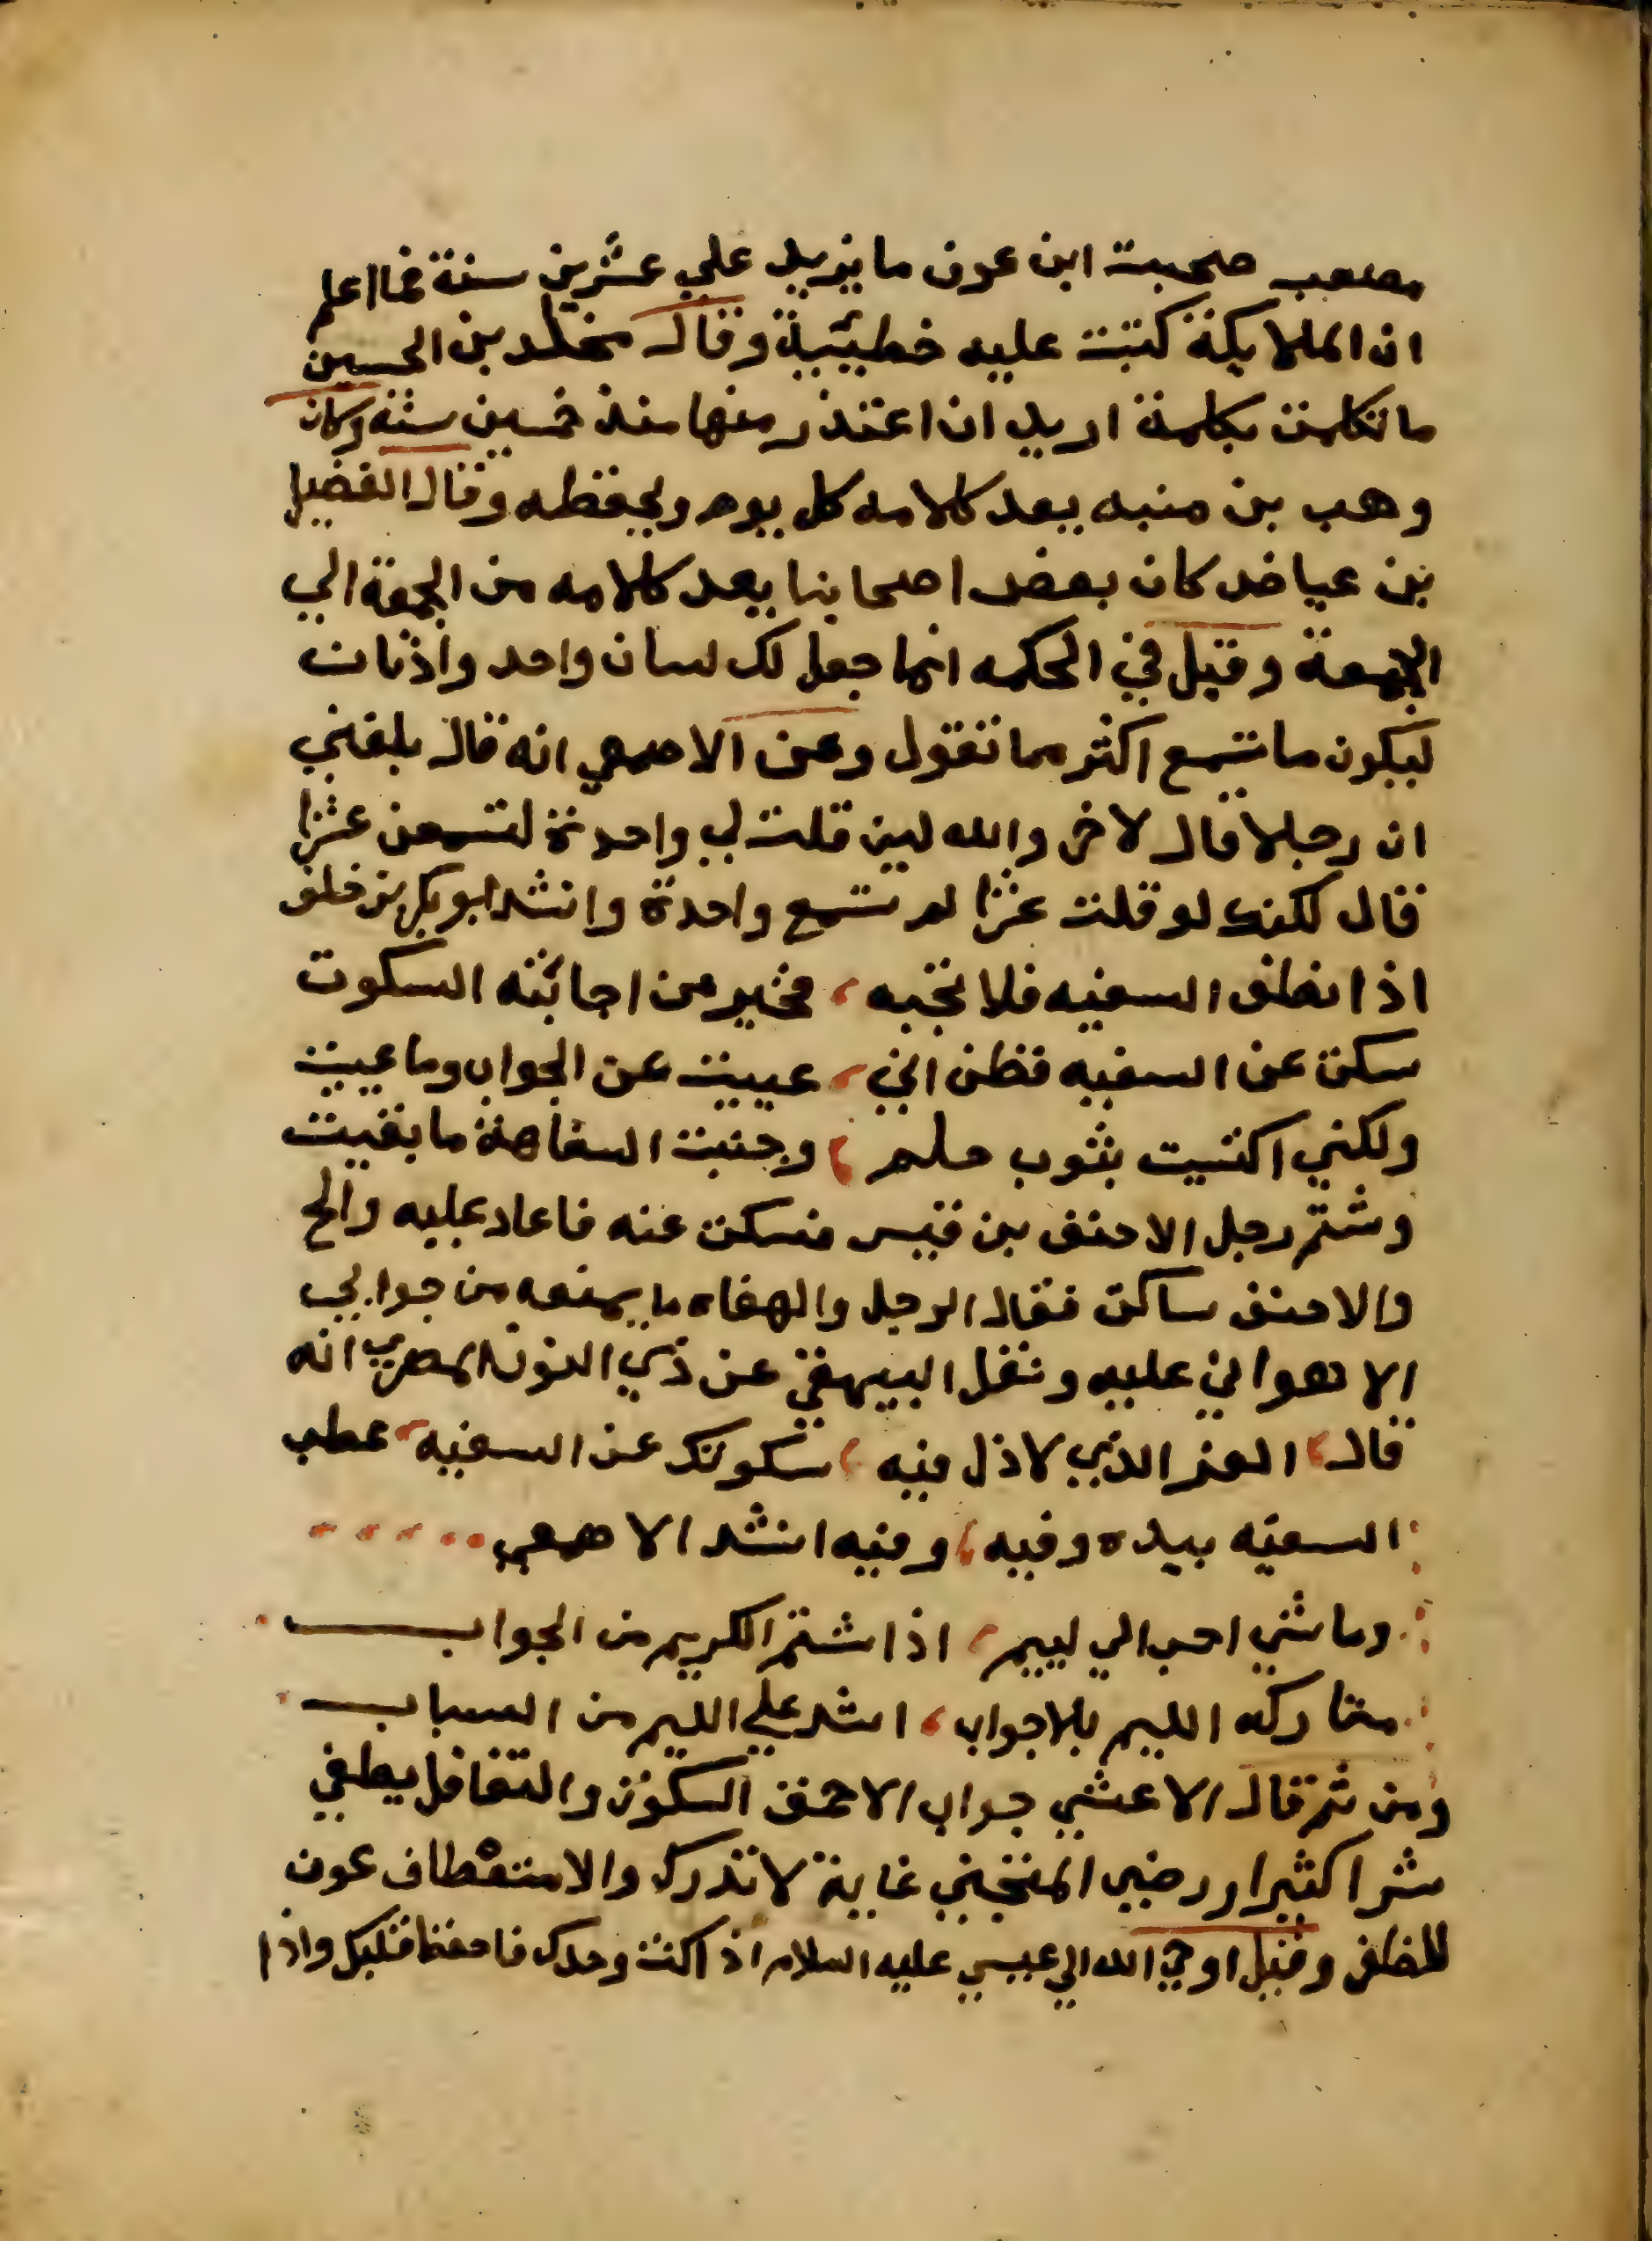 مصعب صحبت ابن عون ما يزيد علي عشرين سنة فما اعلم
ان الملايكة كتبت عليه خطيئة وقال مخلد بن الحسين
ما تكلمت بكلمة اريد ان اعتذر منها منذ خمسين سنة وكان
وهب بن منبه يعد كلامه كل يوم ويحفظه وقال الفضيل
بن عياض كان بعض اصحابنا يعد كلامه من الجمعة الي
الجمعة وقيل في الحكمه انما جعل لك لسان واحد واذنان
ليكون ما تسمع اكثر مما تقول وعن الاصمعي انه قال بلغني
ان رجلا قال لاخر والله لين قلت لي واحدة لتسمعن عشرا
قال لكنك لو قلت عشرا لم تسمع واحدة وانشد ابو بكر بن خلف
اذا نطق السفيه فلا تجبه ، فخير من اجابته السكوت
سكت عن السفيه فظن اني ، عييت عن الجواب وما عييت
ولكني اكتسيت بثوب حلم ، وجنبت السفاهة ما بقيت
وشتم رجل الاحنف بن قيس فسكت عنه فاعاد عليه والح
والاحنف ساكت فقال الرجل والهفاه ما يمنعه من جوابي
الا هواني عليه ونقل البيهقي عن ذي النون المصري انه
قال ، العز الذي لا ذل فيه ، سكوتك عن السفيه ، عطب
السفيه بيده وفيه ، وفيه انشد الاصمعي
وما شي احب الي لييم ، اذا شتم الكريم من الجواب
متاركه اللييم بلا جواب ، اشد علي اللييم من السباب
ومن ثم قال الاعشي جواب الاحمق السكوت والتغافل يطفي
شرا كثيرا ورضي المتجني غاية لا تدرك والاستعطاف عون
للظفر وقيل اوحي الله الي عيسي عليه السلام اذا كنت وحدك فاحفظ قلبك واذا